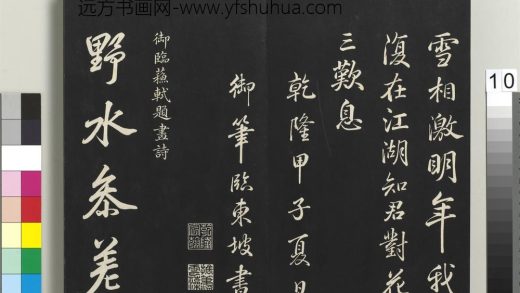 远方书画网-www.yfshuhua.com
10
雪相激明年我
復在江湖知君對花
三歎息
乾隆甲子夏日
御筆臨東坡書
御臨蘇軾題畫詩
野水叅差